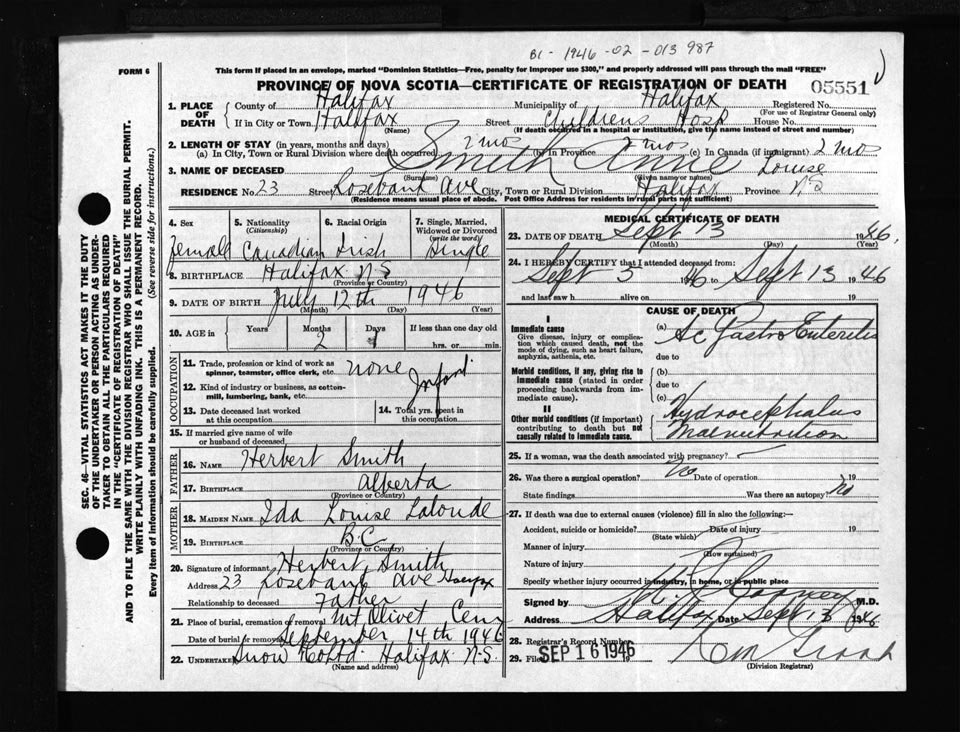 B1- 1946 -02 -013 987
FORM 6
This form if placed in an envelope, marked "Dominion Statistics—Free, penalty for improper use $300," and properly addressed will pass through the mail "FREE"
PROVINCE OF NOVA SCOTIA—CERTIFICATE OF REGISTRATION OF DEATH
05551
1. PLACE OF DEATH
County of Halifax Municipality of Halifax Registered No.
(For use of Registrar General only)
If in City or Town Halifax Street Childrens Hosp House No.
(Name) (If death occurred in a hospital or institution, give the name instead of street and number)
2. LENGTH OF STAY (in years, months and days)
(a) In City, Town or Rural Division where death occurred 2 mos (b) In Province 2 mos (c) In Canada (if immigrant) 2 mos
3. NAME OF DECEASED Smith Anne Louise
(Surname) (Given name or names)
RESIDENCE No. 23 Street Rosebank Ave City, Town or Rural Division Halifax Province N S
(Residence means usual place of abode. Post Office Address for residents in rural parts not sufficient)
4. Sex
female
5. Nationality (Citizenship)
Canadian
6. Racial Origin
Irish
7. Single, Married, Widowed or Divorced (write the word)
Single
8. BIRTHPLACE Halifax N S
(Province or Country)
9. DATE OF BIRTH July 12th 1946
(Month) (Day) (Year)
10. AGE in
Years Months Days If less than one day old
2
hrs. or min.
OCCUPATION
11. Trade, profession or kind of work as spinner, teamster, office clerk, etc. none
12. Kind of industry or business, as cotton-mill, lumbering, bank, etc. Infant
13. Date deceased last worked at this occupation
14. Total yrs. spent in this occupation
15. If married give name of wife or husband of deceased
FATHER
16. NAME Herbert Smith
17. BIRTHPLACE Alberta
(Province or Country)
MOTHER
18. MAIDEN NAME Ida Louise Lalonde
19. BIRTHPLACE B C
(Province or Country)
20. Signature of informant Herbert Smith
Address 23 Rosebank Ave Halifax
Relationship to deceased Father
21. Place of burial, cremation or removal Mt Olivet Cem
Date of burial or removal September 14th 1946
22. UNDERTAKER Snow Halifax N.S.
(Name and address)
MEDICAL CERTIFICATE OF DEATH
23. DATE OF DEATH Sept 13 1946.
(Month) (Day) (Year)
24. I HEREBY CERTIFY that I attended deceased from:
Sept 5 1946 to Sept 13 1946
and last saw h alive on 19
CAUSE OF DEATH
I
Immediate cause
Give disease, injury or complication which caused death, not the mode of dying, such as heart failure, asphyxia, asthenia, etc.
(a) Ac Gastro Enteritis
due to
Morbid conditions, if any, giving rise to immediate cause (stated in order proceeding backwards from immediate cause).
(b)
due to
(c)
II
Other morbid conditions (if important) contributing to death but not causally related to immediate cause.
Hydrocephalus
Malnutrition
25. If a woman, was the death associated with pregnancy?
26. Was there a surgical operation? No Date of operation 19
State findings Was there an autopsy? No
27. If death was due to external causes (violence) fill in also the following:—
Accident, suicide or homicide? Date of injury 19
(State which)
Manner of injury
(How sustained)
Nature of injury
Specify whether injury occurred in industry, in home, or in public place
Signed by M.D.
Address Halifax Date Sept 13 1946
28. Registrar's Record Number
29. Filed SEP 16 1946
(Division Registrar)
SEC. 46—VITAL STATISTICS ACT MAKES IT THE DUTY
OF THE UNDERTAKER OR PERSON ACTING AS UNDER-
TAKER TO OBTAIN ALL THE PARTICULARS REQUIRED
IN THE "CERTIFICATE OF REGISTRATION OF DEATH"
AND TO FILE THE SAME WITH THE DIVISION REGISTRAR WHO SHALL ISSUE THE BURIAL PERMIT.
WRITE PLAINLY WITH UNFADING INK. THIS IS A PERMANENT RECORD.
Every item of information should be carefully supplied. (See reverse side for instructions.)